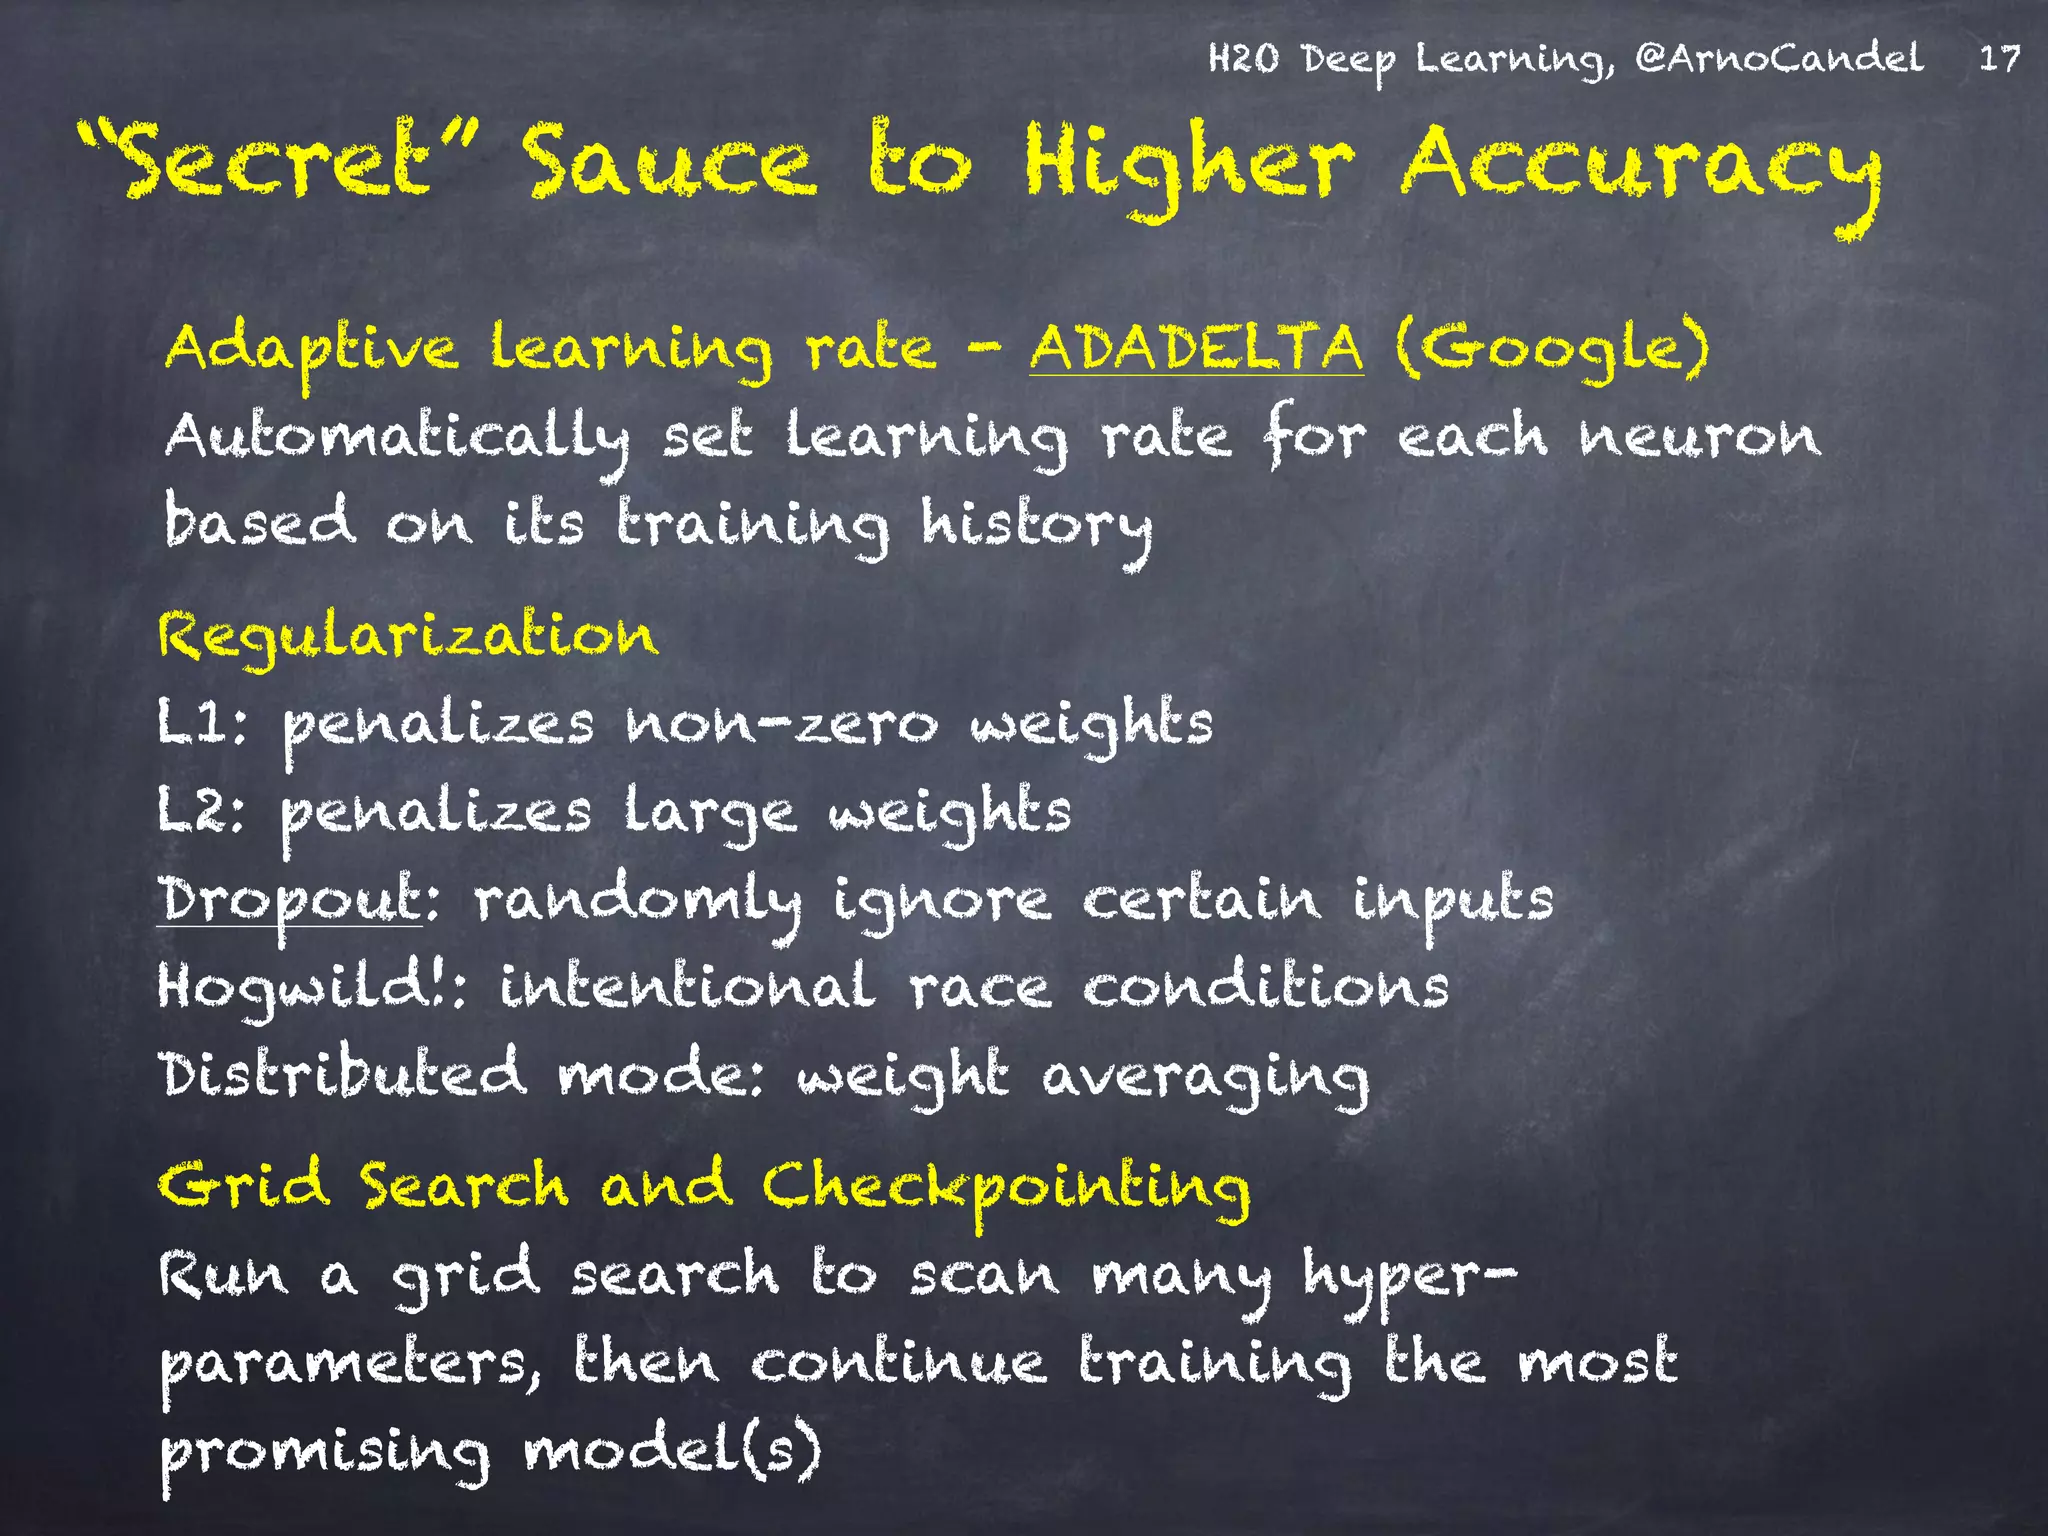 H2O Deep Learning, @ArnoCandel 17
“Secret” Sauce to Higher Accuracy
Adaptive learning rate - ADADELTA (Google)
Automatically set learning rate for each neuron
based on its training history
Regularization
L1: penalizes non-zero weights
L2: penalizes large weights
Dropout: randomly ignore certain inputs
Hogwild!: intentional race conditions
Distributed mode: weight averaging
Grid Search and Checkpointing
Run a grid search to scan many hyper-
parameters, then continue training the most
promising model(s)